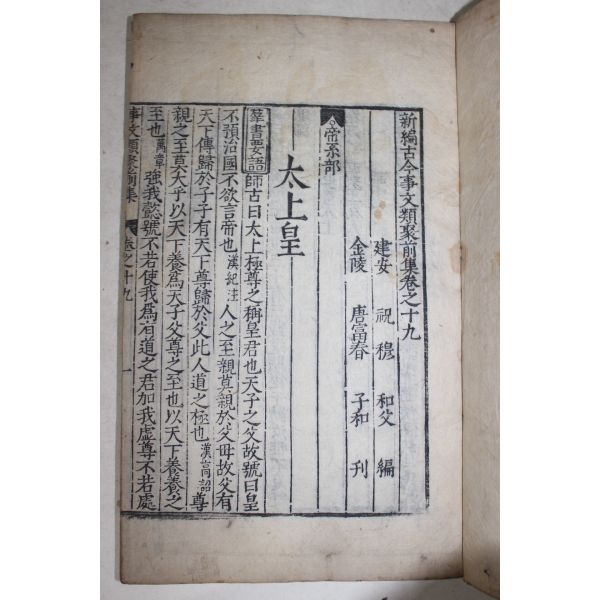 新編古今事文類聚前集卷之十九
建安 祝穆 和父 編
金陵 唐富春 子和 刊
帝系部
太上皇
羣書要語師古曰太上極尊之稱皇君也天子之父故號曰皇
不預治國不欲言帝也漢紀注人之至親莫親於父母故父有
天下傳歸於子子有天下尊歸於父此人道之極也漢高詔尊
親之至莫大乎以天下養爲天子父尊之至也以天下養養之
至也萬章強我懿號不若使我爲有道之君加我虛尊不若處
事文類聚前集 卷之十九 一